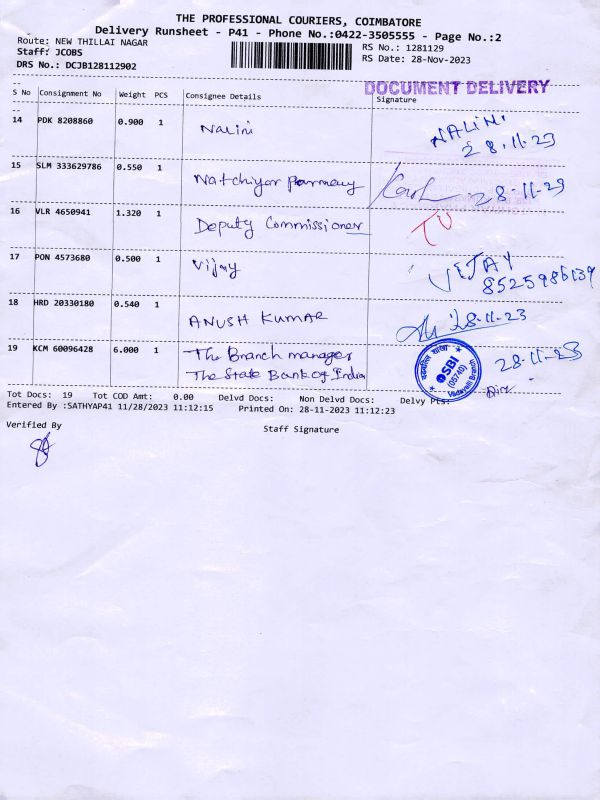 THE PROFESSIONAL COURIERS, COIMBATORE
Delivery Runsheet - P41 - Phone No.:0422-3505555 - Page No.:2
Route: NEW THILLAI NAGAR
RS No.: 1281129
Staff: JCOBS
RS Date: 28-Nov-2023
DRS No.: DCJB128112902
DOCUMENT DELIVERY
S No Consignment No Weight PCS Consignee Details Signature
14 PDK 8208860 0.900 1 Nalini NALINI
28.11.23
15 SLM 333629786 0.550 1 Natchiyar Parmecy 28-11-23
16 VLR 4650941 1.320 1 Deputy Commissioner
17 PON 4573680 0.500 1 Vijay VIJAY
8525986139
18 HRD 20330180 0.540 1 ANUSH KUMAR 28.11.23
19 KCM 60096428 6.000 1 The Branch manager 28-11-23
The State Bank of India
SBI
(05740)
Vadavalli Branch
Tot Docs: 19 Tot COD Amt: 0.00 Delvd Docs: Non Delvd Docs: Delvy Pts:
Entered By :SATHYAP41 11/28/2023 11:12:15 Printed On: 28-11-2023 11:12:23
Verified By
Staff Signature